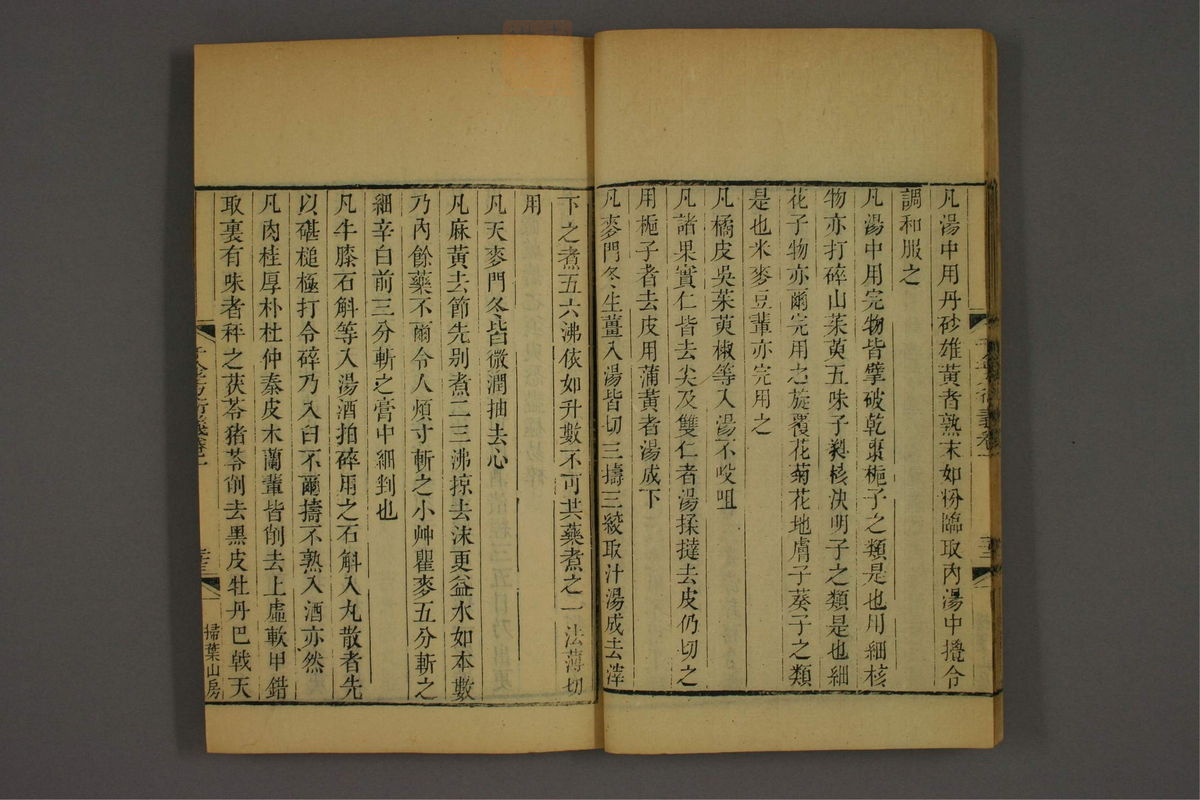 凡湯中用丹砂雄黃者熟末如粉臨取內湯中攪令
調和服之
凡湯中用完物皆擘破乾棗梔子之類是也用細核
物亦打碎山茱萸五味子蕤核決明子之類是也細
花子物亦爾完用之旋覆花菊花地膚子葵子之類
是也米麥豆輩亦完用之
凡橘皮吳茱萸椒等入湯不㕮咀
凡諸果實仁皆去尖及雙仁者湯揉撻去皮仍切之
用梔子者去皮用蒲黃者湯成下
凡麥門冬生薑入湯皆切三擣三絞取汁湯成去滓
下之煮五六沸依如升數不可共藥煮之一法薄切
用
凡天麥門冬皆微潤抽去心
凡麻黃去節先別煮二三沸掠去沫更益水如本數
乃內餘藥不爾令人煩寸斬之小艸瞿麥五分斬之
細辛白前三分斬之膏中細剉也
凡牛膝石斛等入湯酒拍碎用之石斛入丸散者先
以碪槌極打令碎乃入臼不爾擣不熟入酒亦然
凡肉桂厚朴杜仲秦皮木蘭輩皆削去上虛軟甲錯
取裏有味者秤之茯苓猪苓削去黑皮牡丹巴戟天
千金方衍義卷一
掃葉山房